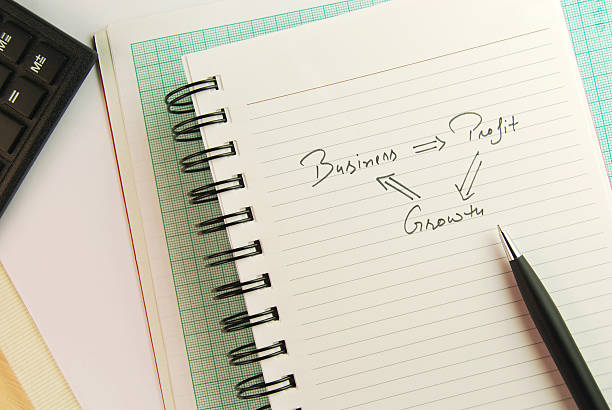 M=
M±
=
Business ⇒ Profit
Growth